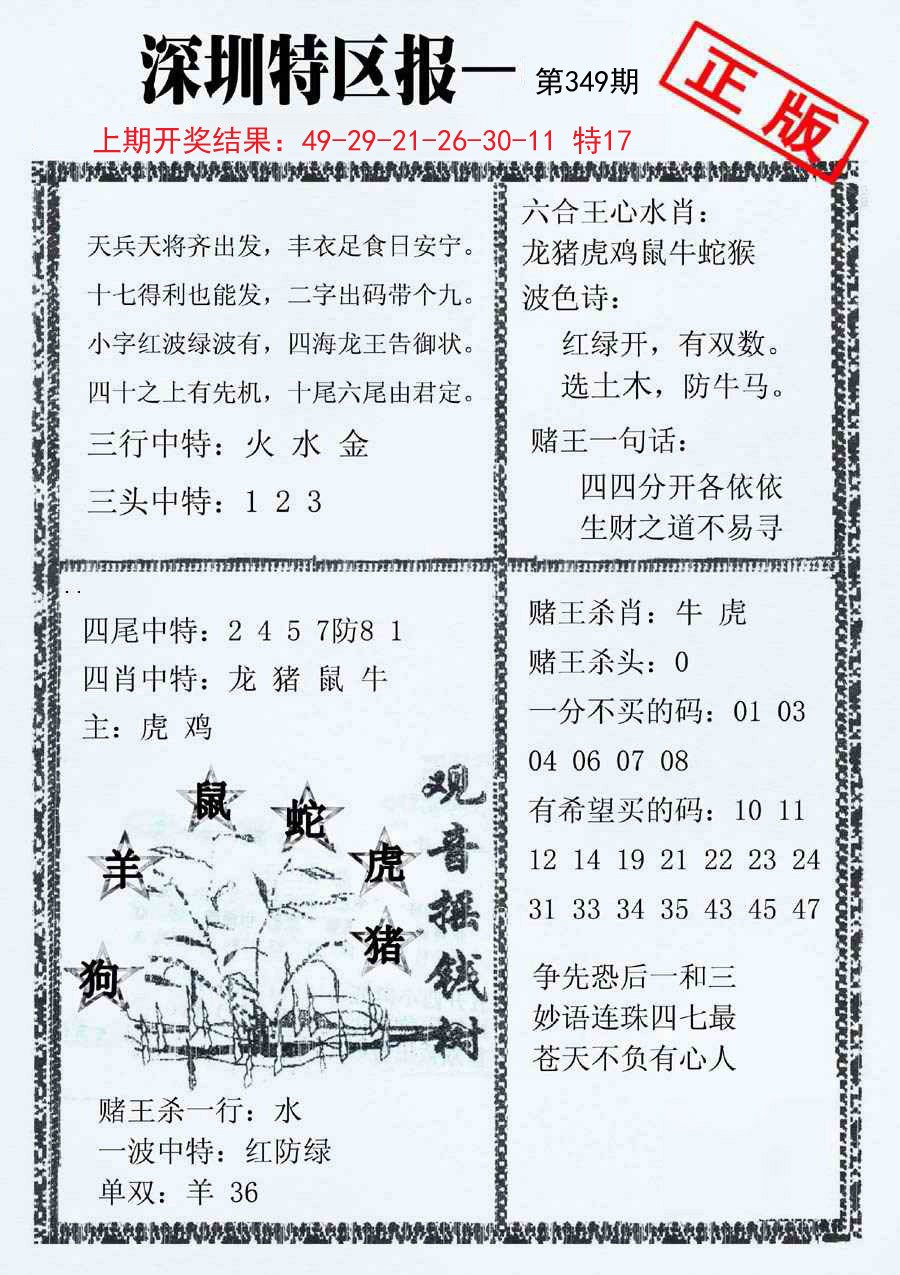 深圳特区报—
第349期
正版
上期开奖结果：49-29-21-26-30-11 特17
天兵天将齐出发，丰衣足食日安宁。
十七得利也能发，二字出码带个九。
小字红波绿波有，四海龙王告御状。
四十之上有先机，十尾六尾由君定。
三行中特：火 水 金
三头中特：1 2 3
六合王心水肖：
龙猪虎鸡鼠牛蛇猴
波色诗：
红绿开，有双数。
选土木，防牛马。
赌王一句话：
四四分开各依依
生财之道不易寻
四尾中特：2 4 5 7防8 1
四肖中特：龙 猪 鼠 牛
主：虎 鸡
鼠
蛇
羊
虎
猪
狗
观音摇钱树
赌王杀一行：水
一波中特：红防绿
单双：羊 36
赌王杀肖：牛 虎
赌王杀头：0
一分不买的码：01 03
04 06 07 08
有希望买的码：10 11
12 14 19 21 22 23 24
31 33 34 35 43 45 47
争先恐后一和三
妙语连珠四七最
苍天不负有心人